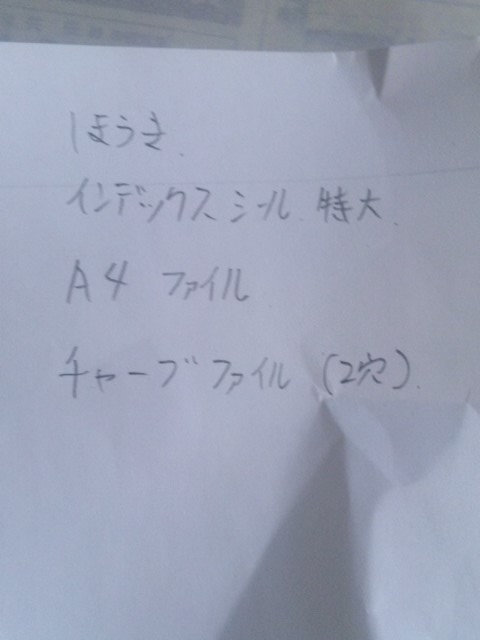 ほうき.
インデックスシール 特大.
A4 ファイル
チャーブファイル (2穴).